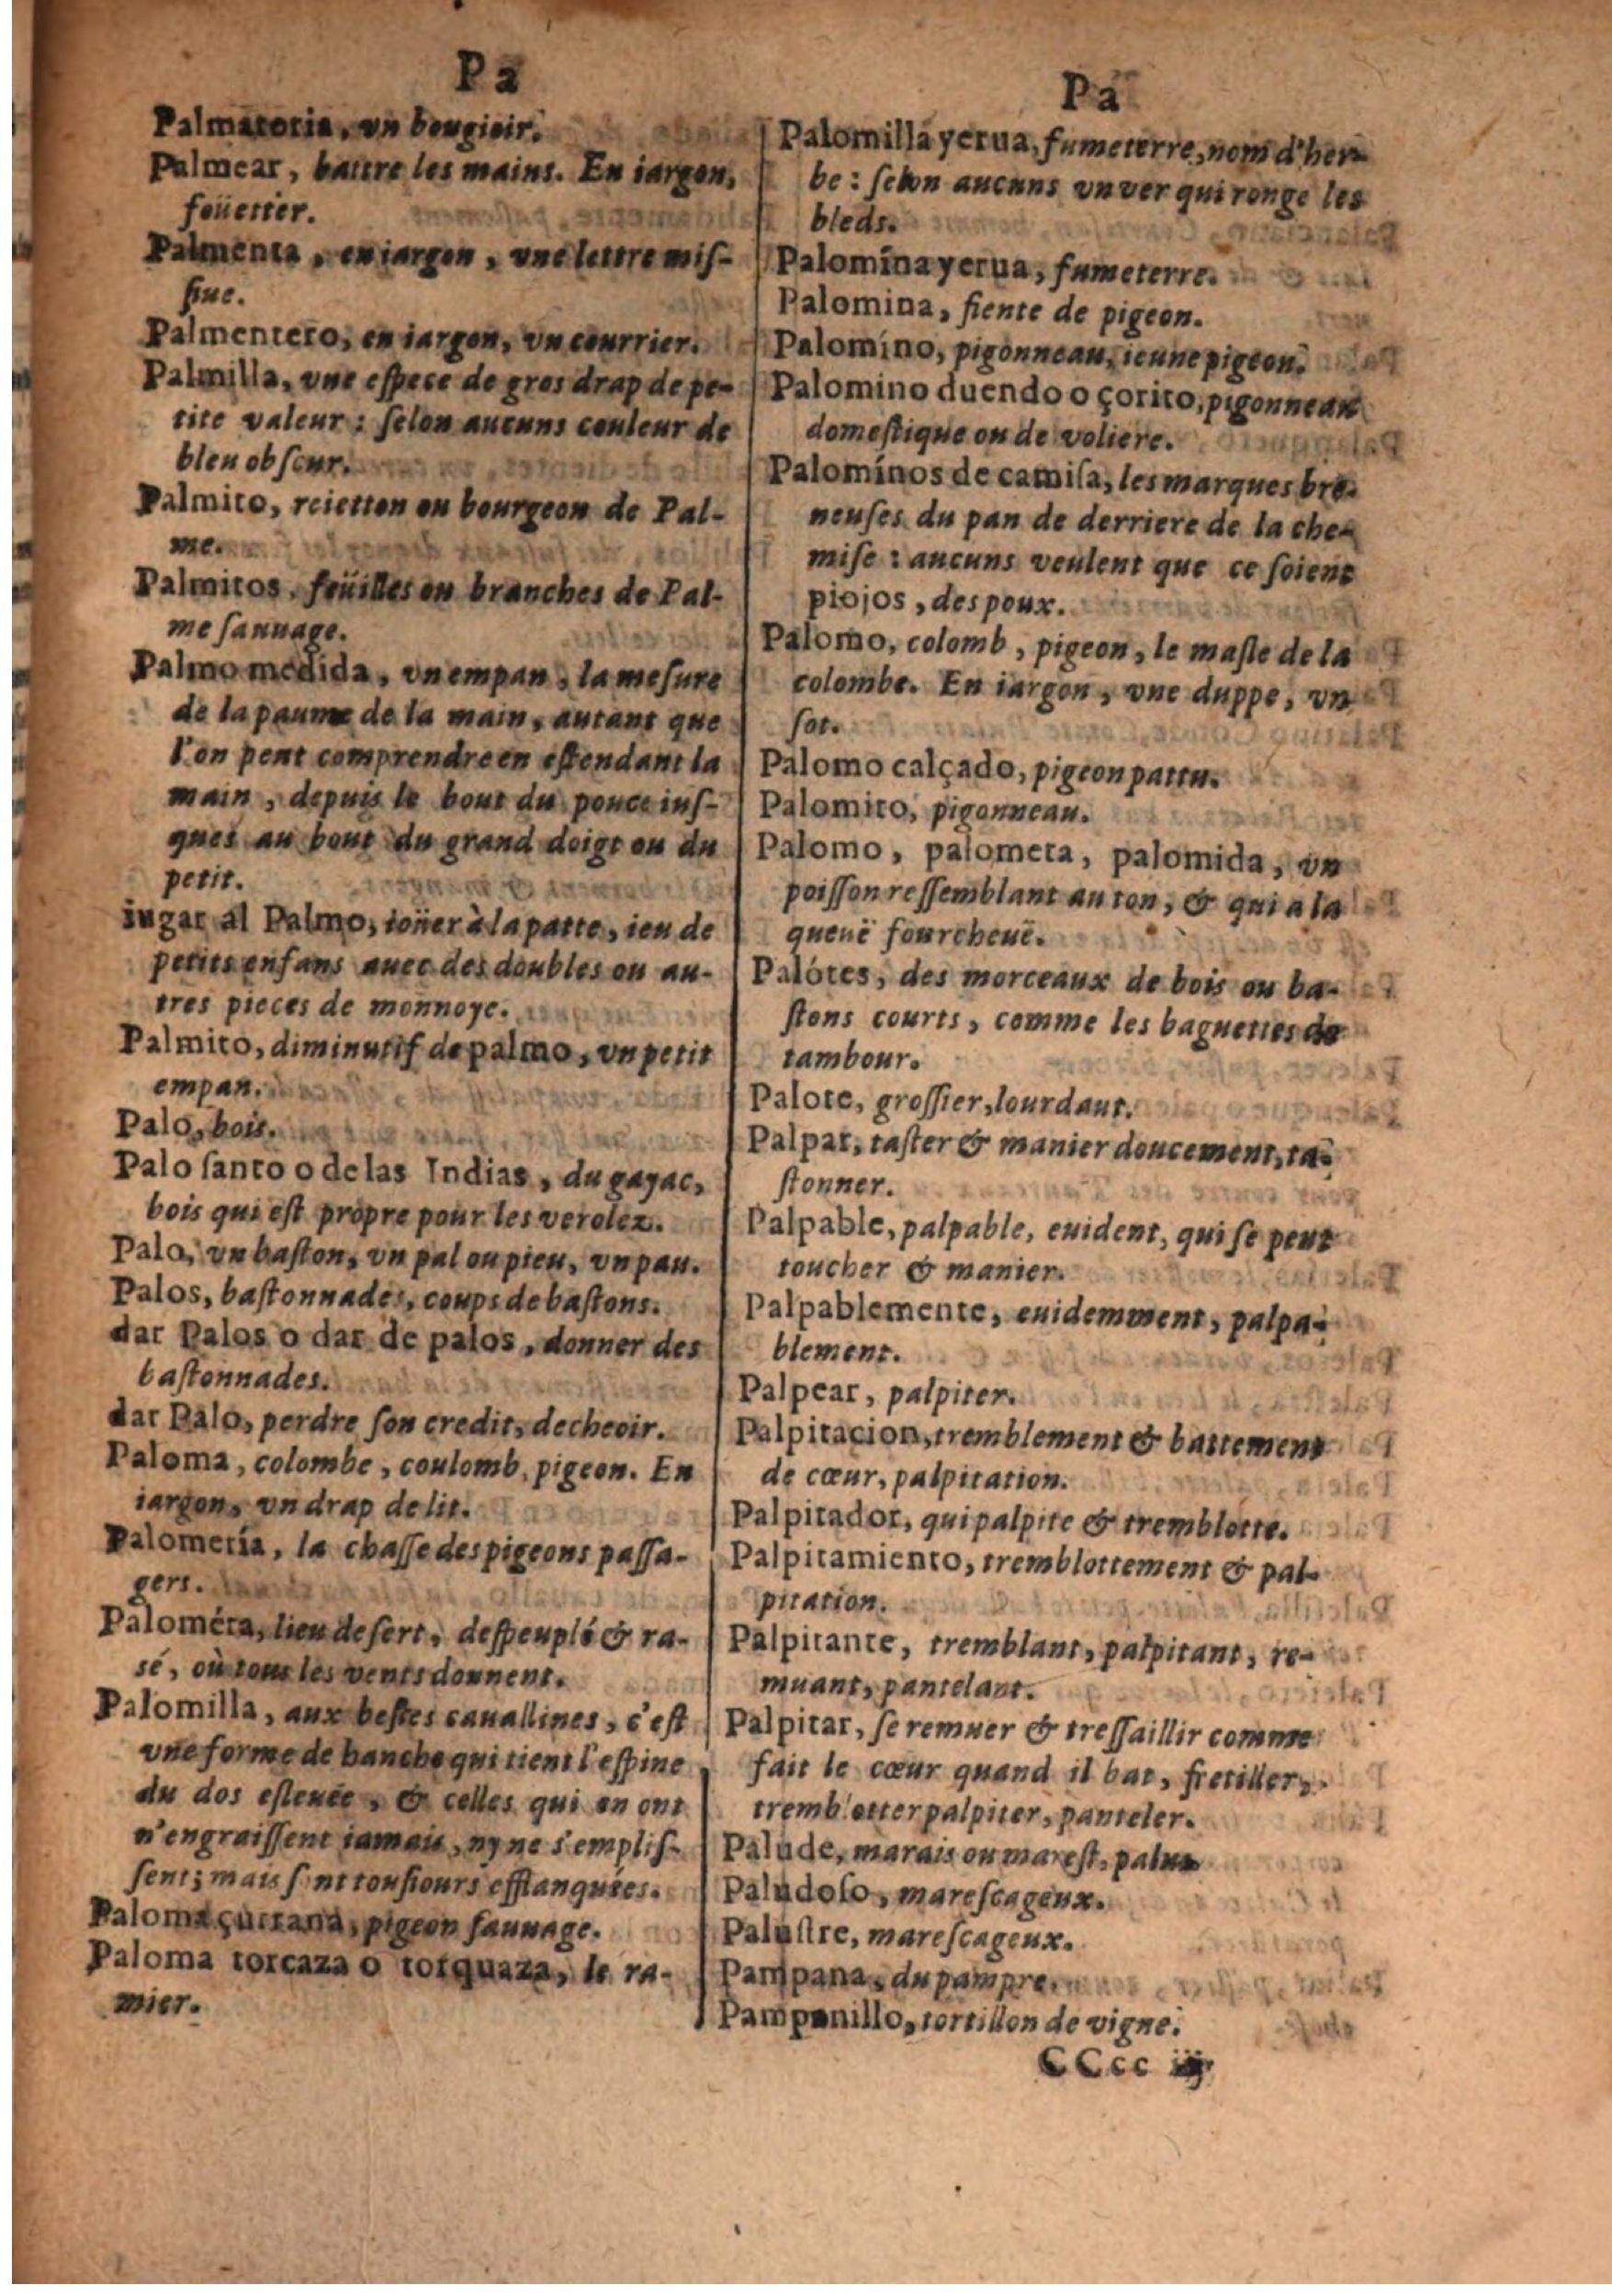 Pa
Palmatoria, vn bougioir.
Palmear, battre les mains. En iargon,
foüetter.
Palmenta, en iargon, vne lettre miſ-
ſiue.
Palmentero, en iargon, vn courrier.
Palmilla, vne eſpece de gros drap de pe-
tite valeur : ſelon aucuns couleur de
bleu obſcur.
Palmito, reietton ou bourgeon de Pal-
me.
Palmitos, feüilles ou branches de Pal-
me ſauuage.
Palmo medida, vn empan, la meſure
de la paume de la main, autant que
l'on peut comprendre en eſtendant la
main, depuis le bout du pouce iuſ-
ques au bout du grand doigt ou du
petit.
iugar al Palmo, ioüer à la patte, ieu de
petits enfans auec des doubles ou au-
tres pieces de monnoye.
Palmito, diminutif de palmo, vn petit
empan.
Palo, bois.
Palo ſanto o de las Indias, du gayac,
bois qui eſt propre pour les verolez.
Palo, vn baſton, vn pal ou pieu, vn pau.
Palos, baſtonnades, coups de baſtons.
dar Palos o dar de palos, donner des
baſtonnades.
dar Palo, perdre ſon credit, decheoir.
Paloma, colombe, coulomb, pigeon. En
iargon, vn drap de lit.
Palomería, la chaſſe des pigeons paſſa-
gers.
Paloméra, lieu deſert, deſpeuplé & ra-
sé, où tous les vents donnent.
Palomilla, aux beſtes cauallines, c'eſt
vne forme de hanche qui tient l'eſpine
du dos eſleuée, & celles qui en ont
n'engraiſſent iamais, ny ne s'emplis-
ſent; mais ſont touſiours efflanquées.
Paloma çurrana, pigeon ſauuage.
Paloma torcaza o torquaza, le ra-
mier.
Pa
Palomilla yerua, fumeterre, nom d'her-
be : ſelon aucuns vn ver qui ronge les
bleds.
Palomína yerua, fumeterre.
Palomina, fiente de pigeon.
Palomíno, pigonneau, ieune pigeon.
Palomino duendo o çorito, pigonneau
domeſtique ou de voliere.
Palomínos de camiſa, les marques bre-
neuſes du pan de derriere de la che-
miſe : aucuns veulent que ce ſoient
piojos, des poux.
Palomo, colomb, pigeon, le maſle de la
colombe. En iargon, vne duppe, vn
ſot.
Palomo calçado, pigeon pattu.
Palomito, pigonneau.
Palomo, palometa, palomida, vn
poiſſon reſſemblant au ton, & qui a la
queuë fourcheuë.
Palótes, des morceaux de bois ou ba-
ſtons courts, comme les baguettes de
tambour.
Palote, groſſier, lourdaut.
Palpar, taſter & manier doucement, ta-
ſtonner.
Palpable, palpable, euident, qui ſe peut
toucher & manier.
Palpablemente, euidemment, palpa-
blement.
Palpear, palpiter.
Palpitacion, tremblement & battement
de cœur, palpitation.
Palpitador, qui palpite & tremblotte.
Palpitamiento, tremblottement & pal-
pitation.
Palpitante, tremblant, palpitant, re-
muant, pantelant.
Palpitar, ſe remuer & treſſaillir comme
fait le cœur quand il bat, fretiller,
tremblotter palpiter, panteler.
Palude, marais ou mareſt, palus
Paludoſo, mareſcageux.
Paluſtre, mareſcageux.
Pampana, du pampre.
Pampanillo, tortillon de vigne.
CCcc iij